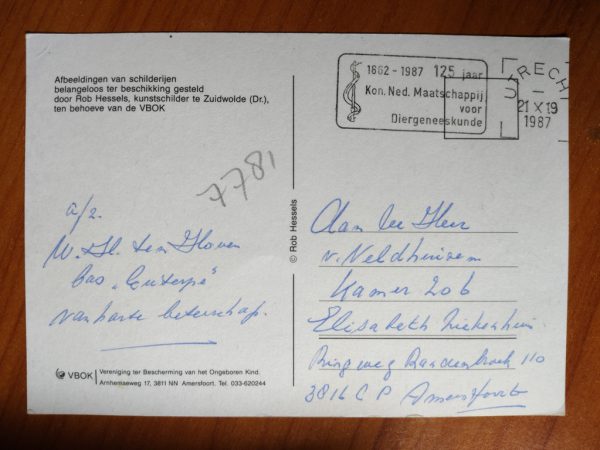 Afbeeldingen van schilderijen
belangeloos ter beschikking gesteld
door Rob Hessels, kunstschilder te Zuidwolde (Dr.),
ten behoeve van de VBOK
1862 - 1987 125 jaar
Kon. Ned. Maatschappij
voor
Diergeneeskunde
UTRECHT
21 X 19
1987
7781
© Rob Hessels
a/z.
W. H. ten Hoven
Bao „Euterpe"
van harte beterschap.
Aan de Heer
v. Veldhuizen
Kamer 206
Elisabeth Ziekenhuis
Ringweg Randenbroek 110
3816 CP Amersfoort
VBOK
Vereniging ter Bescherming van het Ongeboren Kind.
Arnhemseweg 17, 3811 NN Amersfoort. Tel. 033-620244